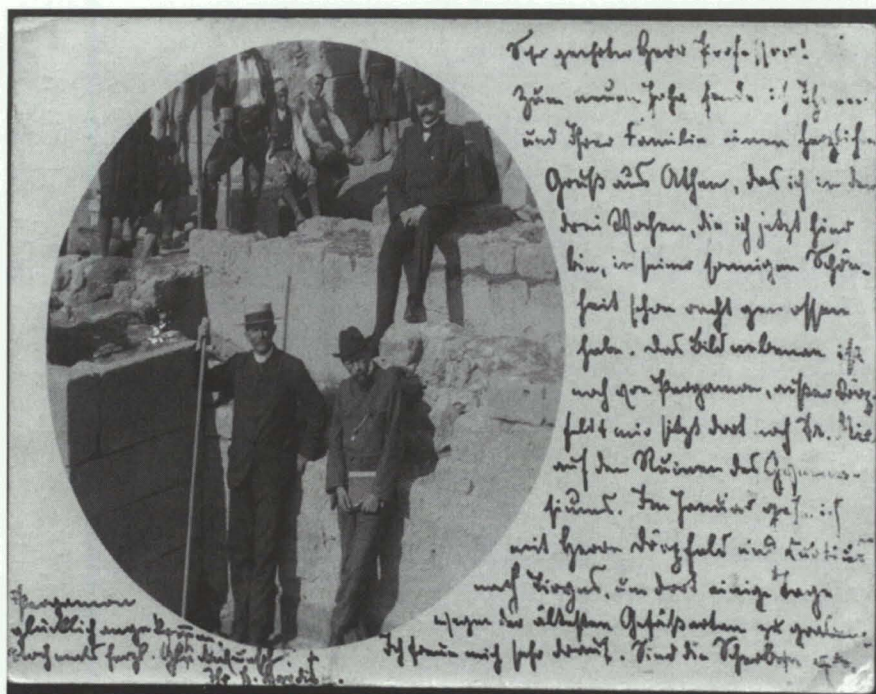 Sehr geehrter Herr Professor!
Zum neuen Jahr sende ich Ihnen
und Ihrer Familie einen herzlichen
Gruß aus Athen, das ich in den
drei Wochen, die ich jetzt hier
bin, in seiner sonnigen Schön-
heit schon recht genossen
habe. Das Bild nebenan ist
noch von Pergamon, außer Dörp-
feld & mir sitzt dort noch
auf den Ruinen des Gymna-
siums. Im Januar geh ich
mit Herrn Dörpfeld und Curtius
nach Tiryns, um dort einige Tage
wegen der ältesten Gefäßarten zu graben.
Ich freue mich sehr darauf. Sind die Scherben
Pergamon
glücklich angekommen
Nochmals herzl.
Ihr